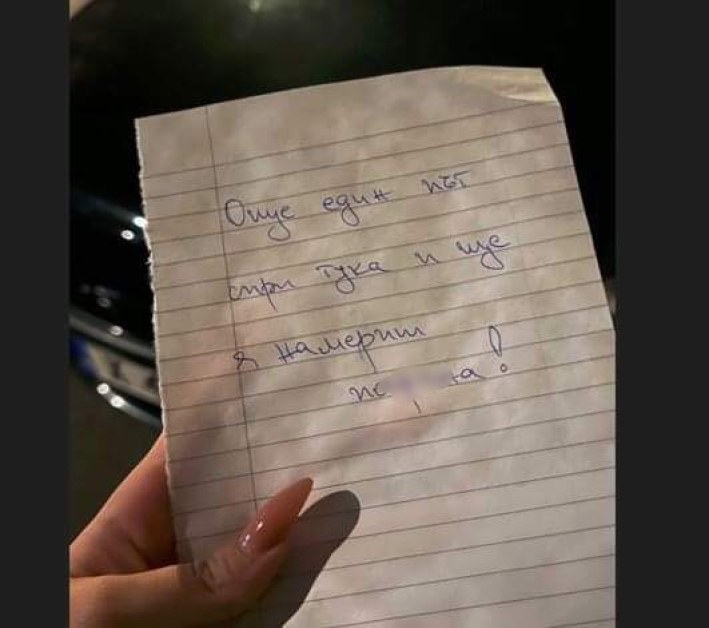 Още един път
спри тука и ще
я намериш
на!